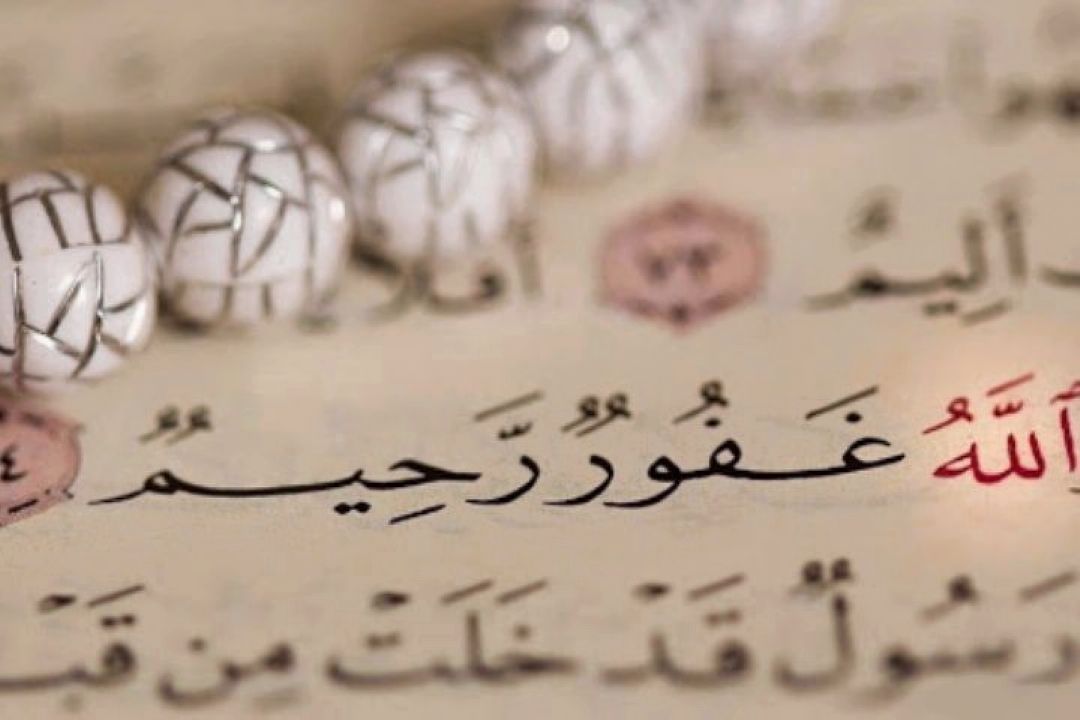 أَلِيمٌ ٧٣ أَفَلَا
ٱللَّهُ غَفُورٌ رَّحِيمٌ ٧٤
رَسُولٌ قَدْ خَلَتْ مِن قَبْ